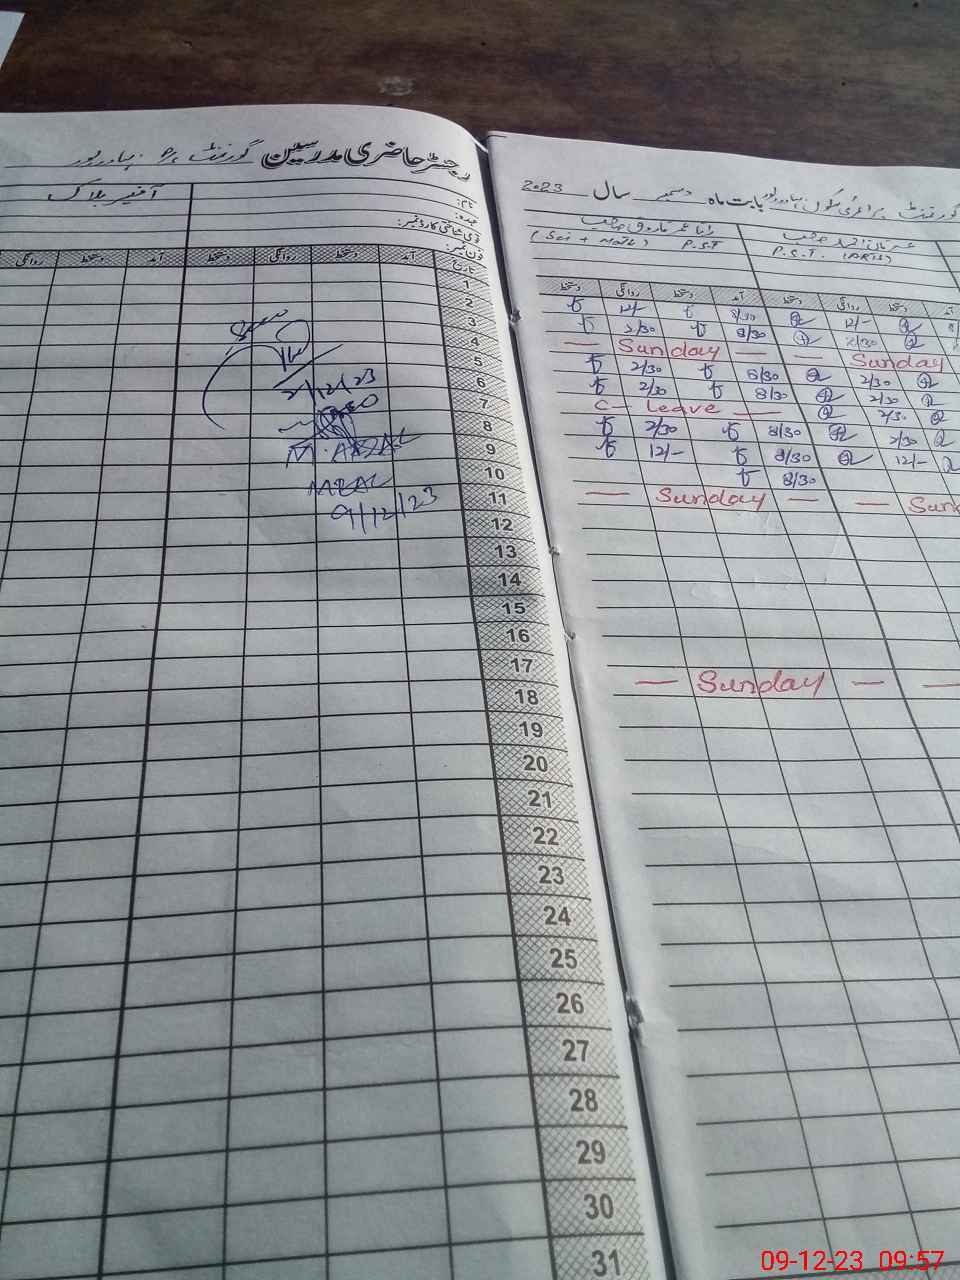 رجسٹر حاضری مدرسین گورنمنٹ
نام:
عہدہ:
قومی شناختی کارڈ نمبر:
فون نمبر:
آفیسر بلاک
تاریخ آمد دستخط روانگی دستخط آمد دستخط روانگی
1
2
3
4
5
6
7
8
9
10
11
12
13
14
15
16
17
18
19
20
21
22
23
24
25
26
27
28
29
30
31
2/12/23
9/12/23
گورنمنٹ پرائمری سکول بابت ماہ دسمبر سال 2023
رانا عمر فاروق صاحب
(Sci + Math) P.S.T
P.S.T. (ARTS)
آمد دستخط روانگی دستخط آمد دستخط روانگی دستخط
12/- 8/30 12/-
2/30 8/30 2/30
— Sunday — — Sunday
2/30 8/30 2/30
2/30 8/30 2/30
C- Leave — 2/30
2/30 8/30 2/30
12/- 8/30 12/-
8/30
— Sunday — — Sund
— Sunday — —
09-12-23 09:57